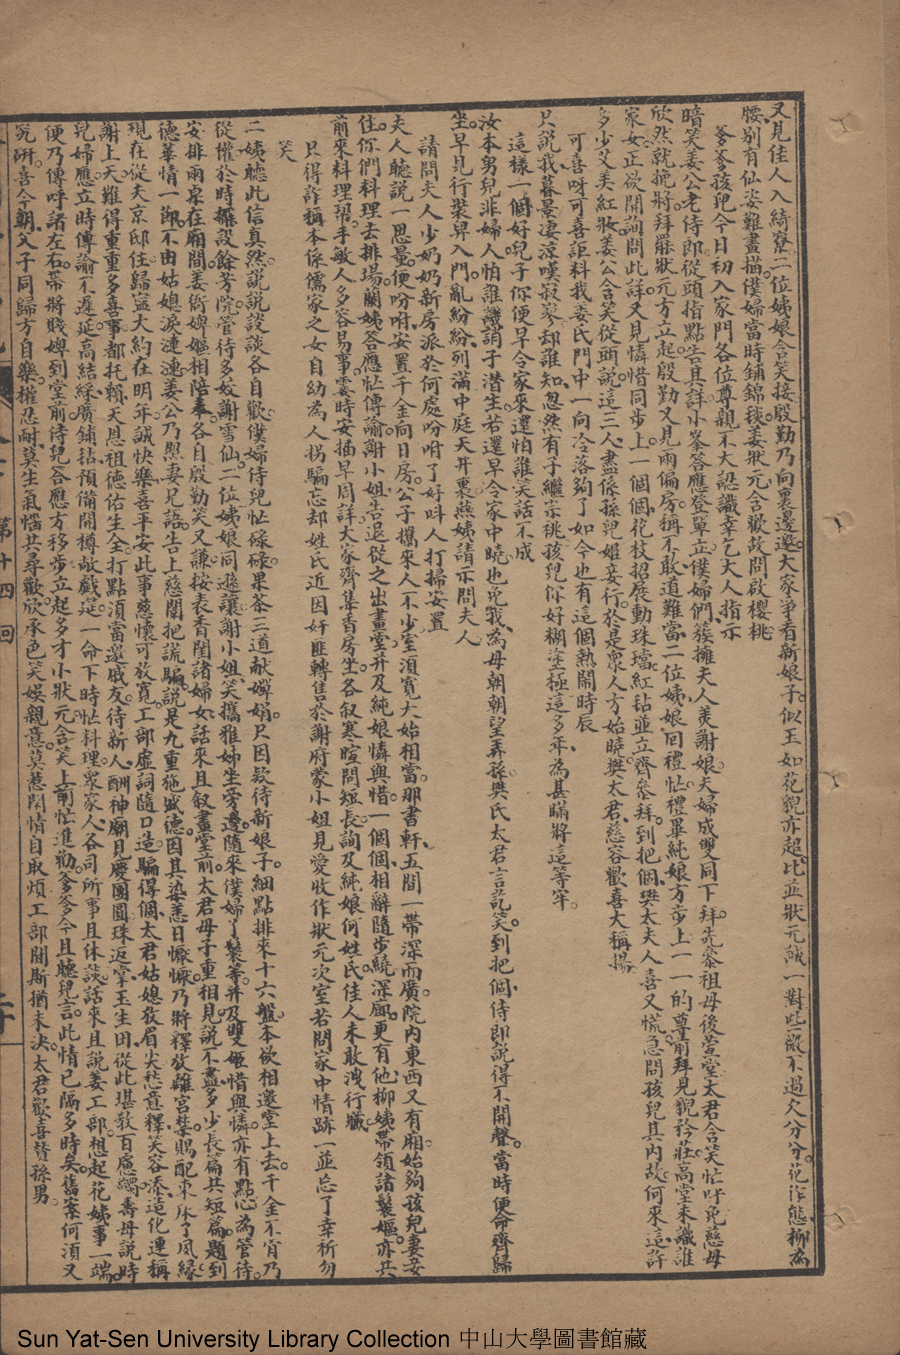 又見佳人入綺寮二位姨娘含笑接殷勤乃向裏邊邀大家爭看新娘子似玉如花貌亦超比並狀元誠一對些微不過欠分分花作態柳為
腰別有仙姿難畫描僕婦當時鋪錦毯姜狀元含歡故問啟櫻桃
爹爹孩兒今日初入家門各位尊親不大認識幸乞大人指示
暗笑姜公老侍郎從頭指點告其詳小峯答應登單立僕婦們簇擁夫人美謝娘夫婦成雙同下拜先參祖母後萱堂太君含笑忙呼免慈母
欣然就挽將拜罷狀元方立起殷勤又見兩偏房稱不敢道難當二位姨娘回禮忙禮畢純娘方步上一一的尊前拜見貌矜莊高堂未識誰
家女正欲開詞問此詳又見憐惜同步上一個個花枝招展動珠璫紅毡並立齊參拜到把個樊太夫人喜又慌急問孩兒其內故何來這許
多少艾美紅妝姜公含笑從頭說這三人盡係孫兒姬妾行於是衆人方始曉樊太君慈容歡喜大稱揚
可喜呀可喜詎料我姜氏門中一向冷落夠了如今也有這個熱鬧時辰
只說我暮景淒涼嘆寂寥却誰知忽然有子繼宗祧孩兒你好糊塗極這多年為甚瞞將這等牢
這樣一個好兒子你便早令家來還怕誰笑話不成
汝本男兒非婦人怕誰譏誚子潛生若還早令家中曉也免我為母朝朝望弄孫樊氏太君言訖笑到把個侍郎說得不開聲當時便命齊歸
坐早見行裝舁入門亂紛紛列滿中庭天井裏燕姨請示問夫人
請問夫人少奶奶新房派於何處吩咐了好呌人打掃安置
夫人聽說一思量便吩咐安置千金向日房公子攜來人不少室須寬大始相當那書軒五間一帶深而廣院內東西又有廂始夠孩兒妻妾
住你們料理去排場蘭姨答應忙傳諭謝小姐告退從之出畫堂并及純娘憐與惜一個個相辭隨步繞深廊更有他柳姨帶領諸鬟嫗亦共
前來料理幫手敏人多容易事霎時安插早周詳大家齊集香房坐各叙寒暄問短長詢及純娘何姓氏佳人未敢洩行藏
只得詐稱本係儒家之女自幼為人拐騙忘却姓氏近因奸匪轉售於謝府蒙小姐見愛收作狀元次室若問家中情跡一並忘了幸祈勿
笑
二姨聽此信真然說說談談各自歡僕婦侍兒忙碌碌果茶三道献嬋娟只因欵待新娘子細點排來十六盤本欲相邀堂上去千金不肯乃
從權於時擺設餘芳院管待多姣謝雪仙二位姨娘同遜讓謝小姐笑攜雅姊坐旁邊隨來僕婦丫鬟等并及雙姬惜與憐亦有點心為管待
安排兩桌在廂間姜衙婢嫗相陪奉各自殷勤笑又謙按表香閨諸婦女話來且叙畫堂前太君母子重相見說不盡多少長篇共短篇題到
德華情一節不由姑媳淚漣漣姜公乃照妻兄語告上慈闈把謊騙說是九重施盛德因其染恙日懨懨乃將釋放離宮禁賜配東床了夙緣
現在從夫京邸住歸寧大約在明年誠快樂喜平安此事慈懷可放寬工部虛詞隨口造騙得個太君姑媳放眉尖愁意釋笑容添造化連稱
謝上天難得重重多喜事都托賴天恩祖德佑生全打點須當還戚友待新人酬神廟見慶團圓珠返掌玉生田從此堪教百慮蠲壽母說時
兒婦應立時傳諭不遲延高結綵廣鋪毡預備開樽敞戲筵一命下時忙料理衆家人各司所事且休談話來且說姜工部想起花姨事一端
便乃傳呼諸左右帶將賤婢到堂前侍兒答應方移步立起多才小狀元含笑上前忙進勸爹爹今且聽兒言此情已隔多時矣舊案何須又
究研喜今朝父子同歸方自樂權忍耐莫生氣惱共尋歡欣承色笑娱親意莫惹閑情自取煩工部聞斯猶未決太君歡喜贊孫男
第十四回
Sun Yat-Sen University Library Collection 中山大學圖書館藏